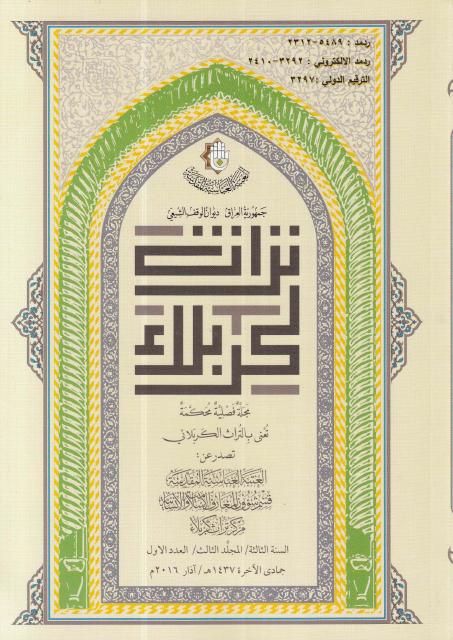 ردمد : ٥٤٨٩-٢٣١٢
ردمد الالكتروني : ٣٢٩٢-٢٤١٠
الترقيم الدولي :٣٢٩٧
العتبة العباسية المقدسة
جمهورية العراق ديوان الوقف الشيعي
تراث
كربلاء
مجلة فصلية محكمة
تعنى بالتراث الكربلائي
تصدر عن:
العتبة العباسية المقدسة
قسم شؤون المعارف الإسلامية والإنسانية
مركز تراث كربلاء
السنة الثالثة/ المجلد الثالث/ العدد الاول
جمادى الآخرة ١٤٣٧هـ/ آذار ٢٠١٦م